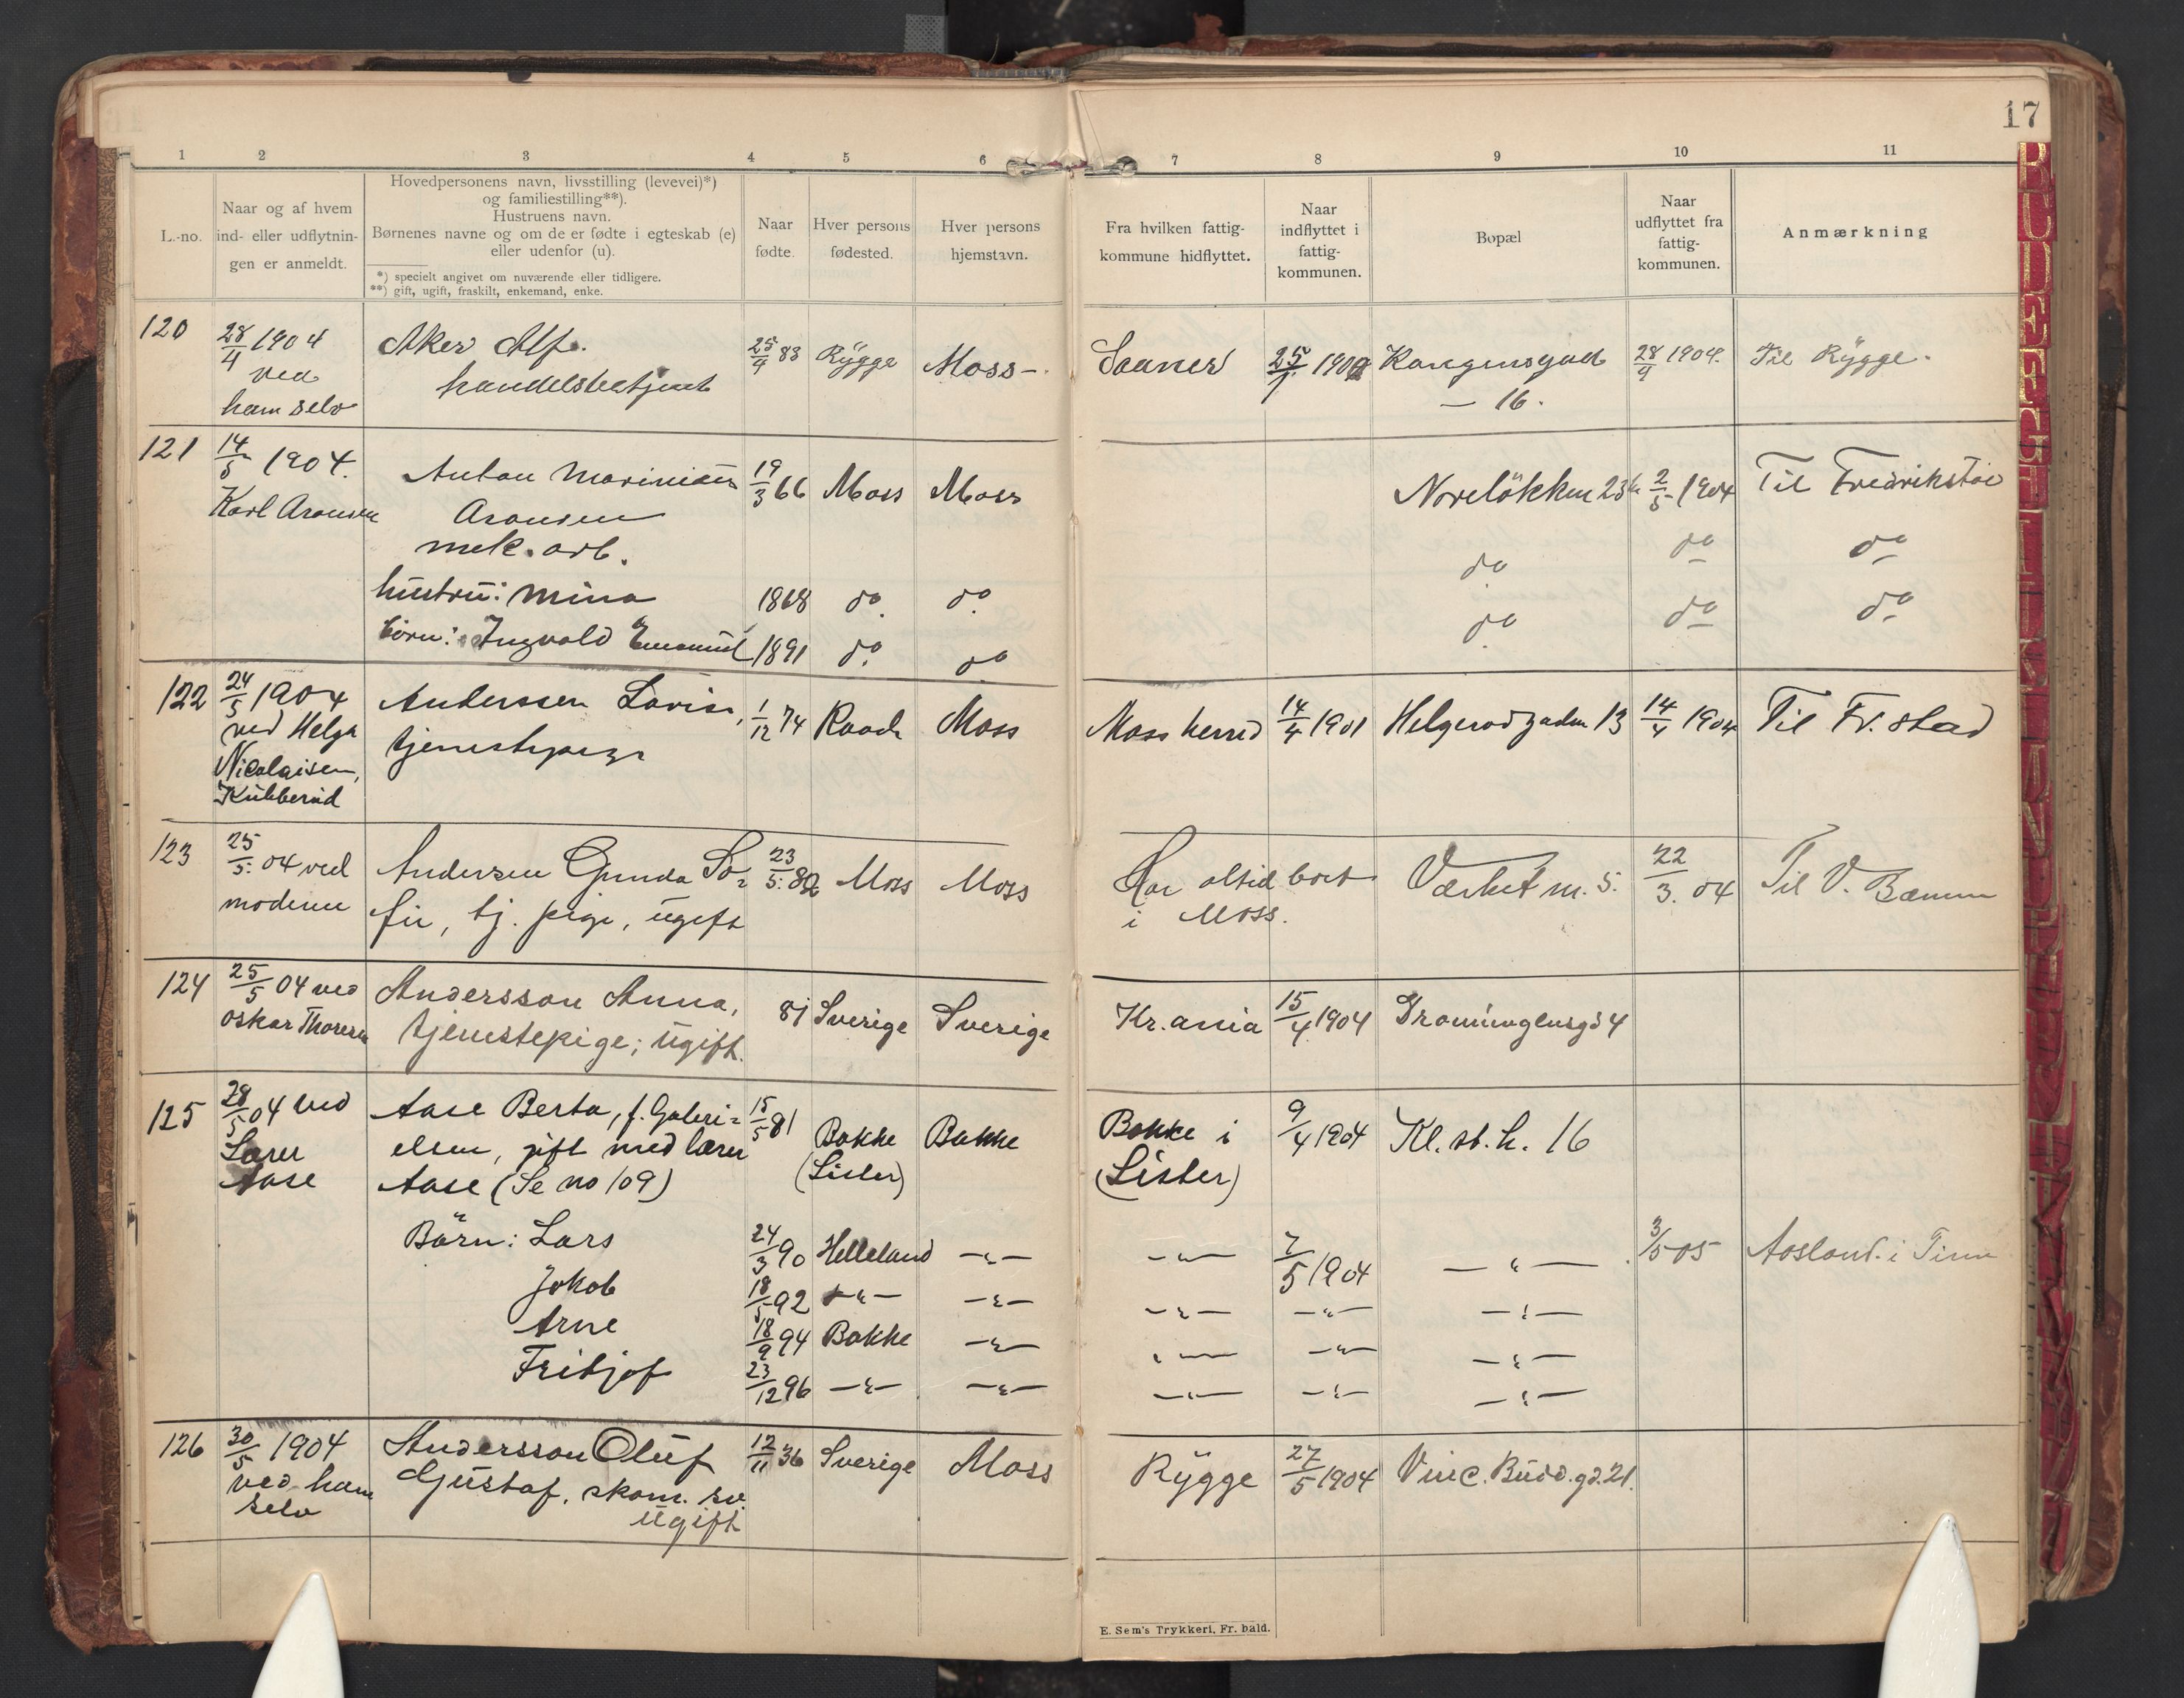 17
1 2 3 4 5 6 7 8 9 10 11
L.-no.
Naar og af hvem
ind- eller udflytnin-
gen er anmeldt.
Hovedpersonens navn, livsstilling (levevei)*)
og familiestilling**).
Hustruens navn.
Børnenes navne og om de er fødte i egteskab (e)
eller udenfor (u).
*) specielt angivet om nuværende eller tidligere.
**) gift, ugift, fraskilt, enkemand, enke.
Naar
fødte.
Hver persons
fødested.
Hver persons
hjemstavn.
Fra hvilken fattig-
kommune hidflyttet.
Naar
indflyttet i
fattig-
kommunen.
Bopæl
Naar
udflyttet fra
fattig-
kommunen.
Anmærkning
120 28/4 1904 Aker Alf. 25/9 83 Rygge Moss - Saaner 1900 Kongensgad 28/4 1904. Til Rygge.
ved handelsbetjent — 16.
ham selv
121 14/5 1904. Anton Marinius 19/3 66 Moss Moss Noreløkken 23 2/5 1904 Til Fredrikstad
Karl Aronsen Aronsen
mek. arb. do do do
hustru: Mina 1868 do do do do do
børn: Ingvald Emanuel 1891 do do
122 24/5 1904 Anderssen Lovise, 1/12 74 Raade Moss Moss herred 14/4 1901 Helgerodgaden 13 14/4 1904 Til Fr.stad
ved Helga tjenestepige
Nicolaisen,
Kubberød
123 25/5. 04 ved Andersen Gunda So= 23/5. 82 Moss Moss Har altid boet Værket m. 5. 22/3. 04 Til V. Bærum
moderen fie, tj. pige, ugift i Moss.
124 25/5 04 ved Andersson Anna, 81 Sverige Sverige Kr.ania 15/4 1904 Dronningensgd 4
Oskar Thoresen tjenestepige; ugift.
125 28/5 04 ved Aase Berta, f. Gabri= 15/5 81 Bakke Bakke Bakke i 9/4 1904 Kl. st. h. 16
Lærer elsen, gift med lærer (Lister) (Lister)
Aase Aase (Se no 109)
Børn: Lars 24/3 90 Helleland —"— —"— 7/5 1904 —"— 3/5 05 Aasland i Tinn
Jakob 18/5 92 —"— —"— —"— —"— —"—
Arne 18/9 94 Bakke —"— —"— —"— —"—
Fritjof 23/12 96 —"— —"— —"— —"— —"—
126 30/5 1904 Andersson Oluf 12/11 36 Sverige Moss Rygge 27/5 1904 Vinc. Budd. gd. 21.
ved ham Gustaf, skom. sv.
selv ugift
E. Sem's Trykkeri, Fr. hald.